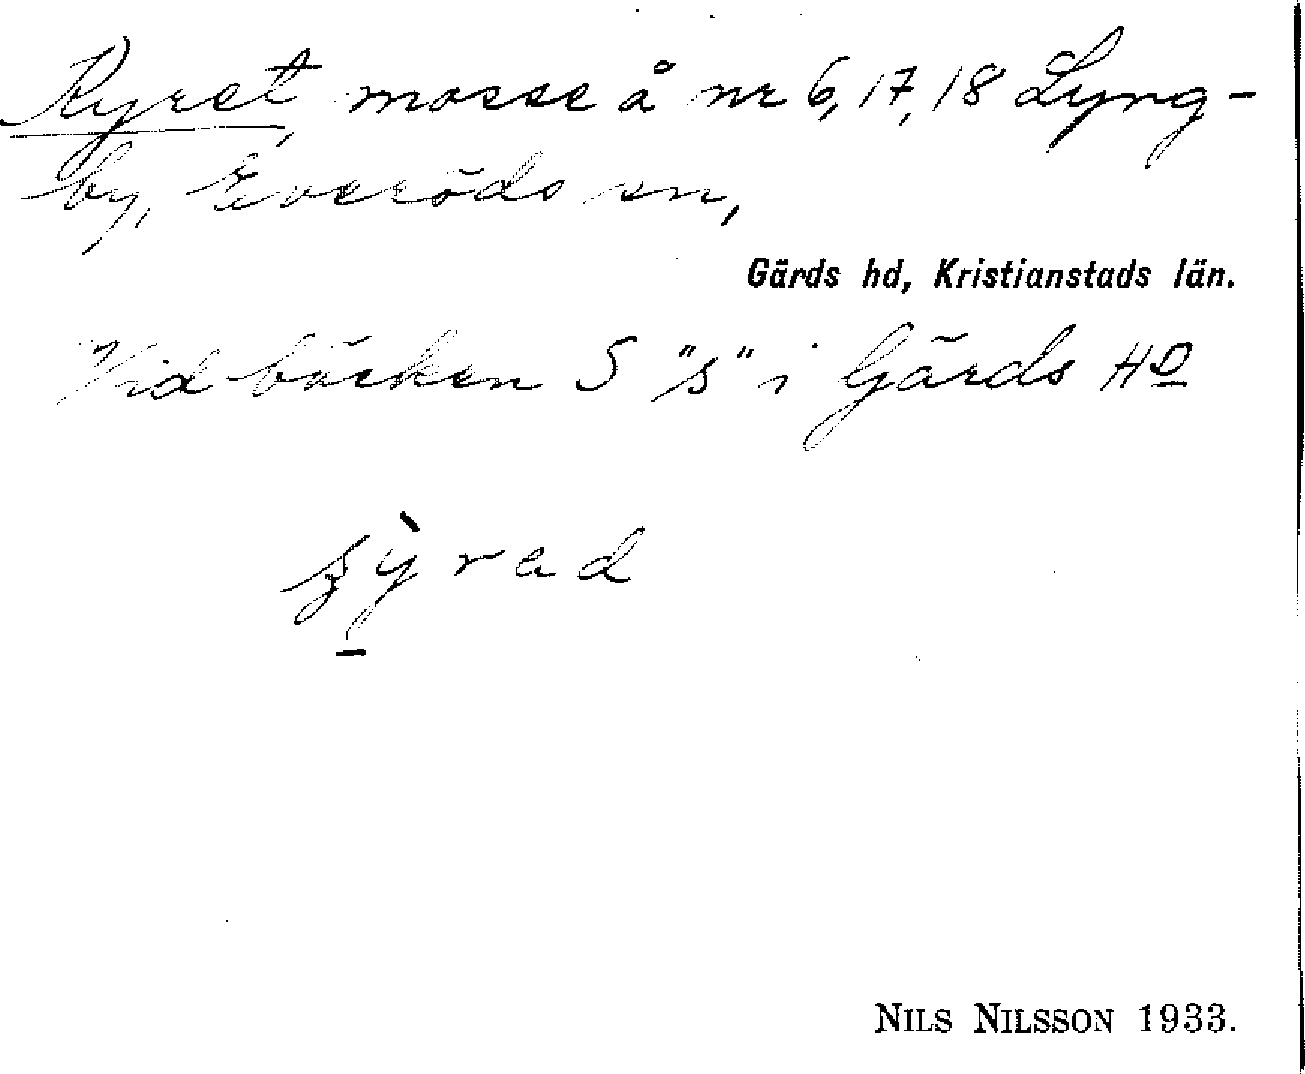 Kyret, mosse å nr 6, 17, 18 Lyng-
by, Everöds sn,
Gärds hd, Kristianstads län.
Vid bäcken S "s" i Gärds HD
NILS NILSSON 1933.